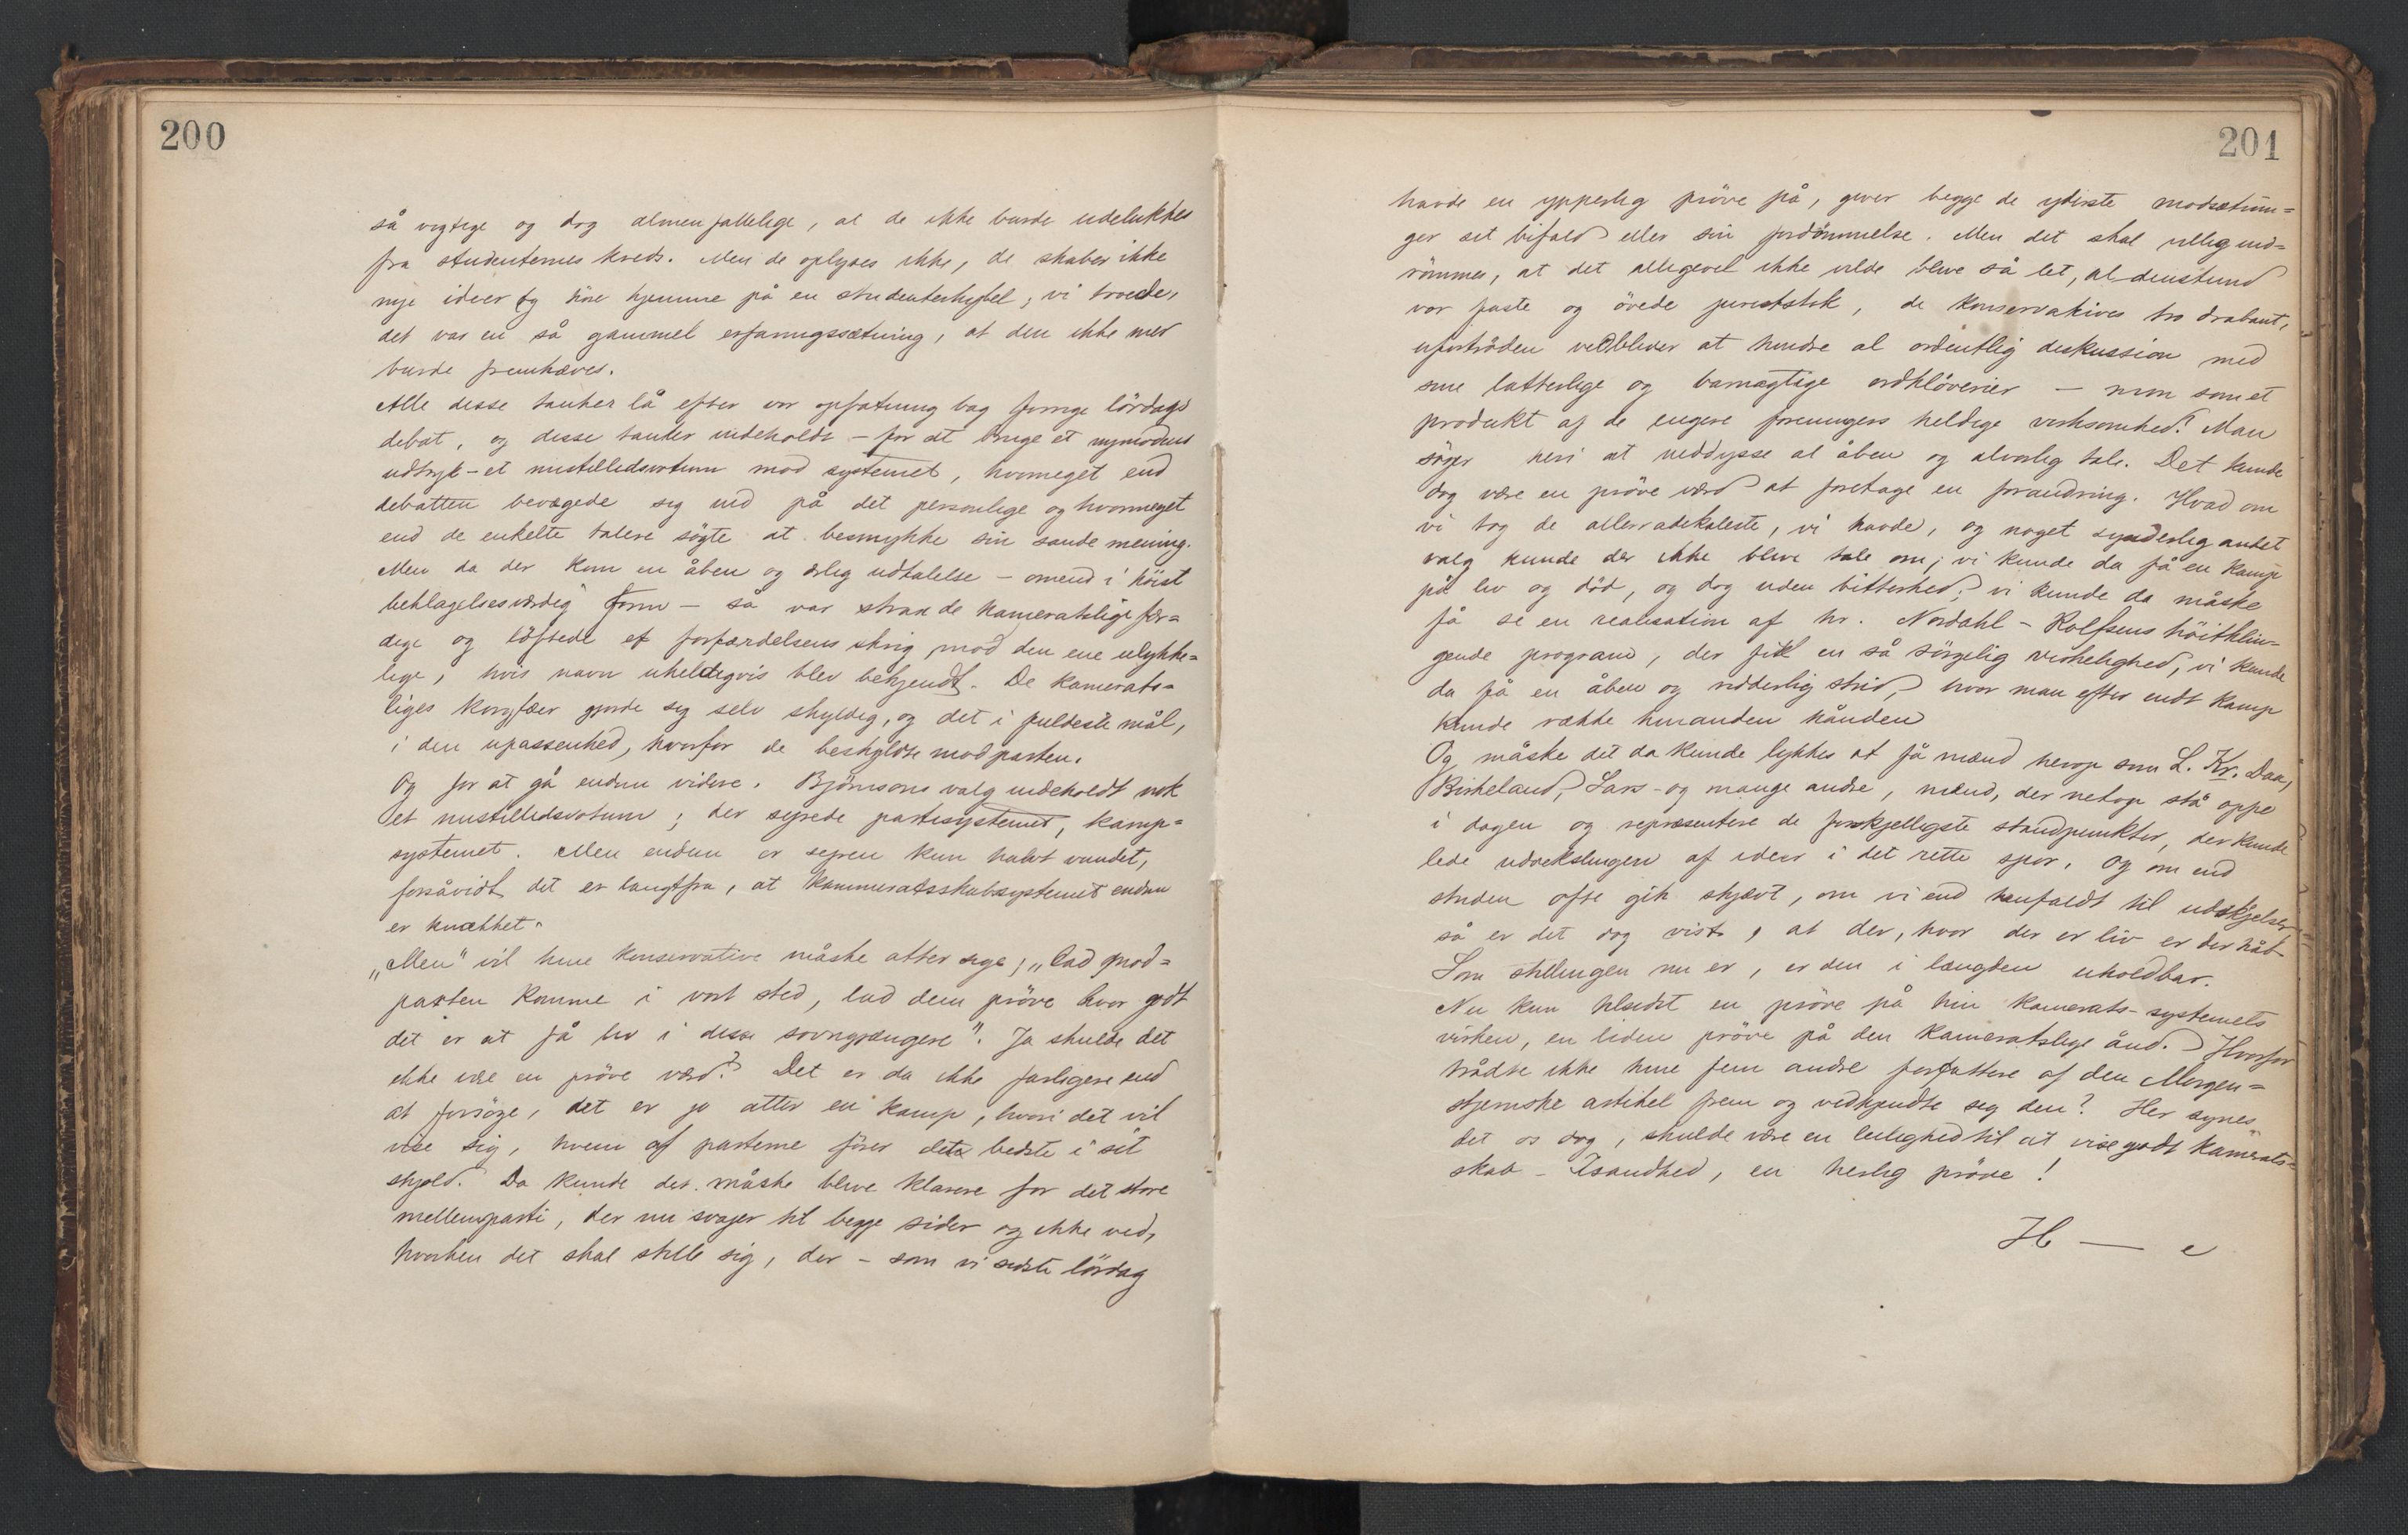 200
så vigtige og dog almenfattelige, at de ikke burde udelukkes
fra studenternes kreds. Men de oplyses ikke, de skabes ikke
nye ideer og höre hjemme på en studenterhybel; vi troede,
det var en så gammel erfaringssætning, at den ikke mer
burde fremhæves.
Alle disse tanker lå efter vor opfatning bag forrige lördags
debat, og disse tanker indeholdt – for at bruge et nymodens
udtryk – et mistillidsvotum mod systemet, hvormeget end
debatten bevægede sig ind på det personlige og hvormeget
end de enkelte talere sögte at besmykke sin sande mening.
Men da der kom en åben og ærlig udtalelse – omend i höist
beklagelsesværdig form – så var strax de kameratslige fær=
dige og löftede et forfærdelsens skrig mod den ene ulykke=
lige, hvis navn uheldigvis blev bekjendt. De kamerats=
liges koryfæer gjorde sig selv skyldig, og det i fuldeste mål,
i den upassenhed, hvorfor de beskyldte modparten.
Og for at gå endnu videre. Björnsons valg indeholdt nok
et mistillidsvotum; der seirede partisystemet, kamp=
systemet. Men endnu er seiren kun halvt vundet,
forsåvidt det er langtfra, at kammeratsskabssystemet endnu
er knækket.
„Men" vil hine konservative måske atter sige, „lad mod=
parten komme i vort sted, lad dem pröve hvor godt
det er at få liv i disse sövngjængere". Ja skulde det
ikke være en pröve værd? Det er da ikke farligere end
at forsöge, det er jo atter en kamp, hvori det vil
vise sig, hvem af parterne förer det bedste i sit
skjold. Da kunde det måske blive klarere for det store
mellemparti, der nu svajer til begge sider og ikke ved,
hvorhen det skal stille sig, der – som vi sidste lördag
201
havde en ypperlig pröve på, giver begge de yderste modsætnin=
ger sit bifald eller sin fordömmelse. Men det skal villig ind=
römmes, at det alligevel ikke vilde blive så let, al denstund
vor faste og övede juriststok, de konservatives tro drabant,
ufortröden vedbliver at hindre al ordentlig diskussion med
sine latterlige og barnagtige ordklöverier – mon som et
produkt af de engere foreningers heldige virksomhed? Man
söger heri at neddysse al åben og alvorlig tale. Det kunde
dog være en pröve værd at foretage en forandring. Hvad om
vi tog de allerradikaleste, vi havde, og noget synderlig andet
valg kunde der ikke blive tale om; vi kunde da få en kamp
på liv og död, og dog uden bitterhed; vi kunde da måske
få se en realisation af hr. Nordahl – Rolfsens höitklin=
gende program, der fik en så sörgelig virkelighed, vi kunde
da få en åben og ridderlig strid, hvor man efter endt kamp
kunde række hinanden hånden
Og måske det da kunde lykkes at få mænd herop som L. Kr. Daa,
Birkeland, Sars – og mange andre, mænd, der netop stå oppe
i dagen og repræsentere de forskjelligste standpunkter, der kunde
lede udvekslingen af ideer i det rette spor. Og om end
striden ofte gik skjævt, om vi end henfaldt til udskjelser
så er det dog vist, at der, hvor der er liv er der håb
Som stillingen nu er, er den i længden uholdbar.
Nu kun tilsidst en pröve på hin kamerats-systemets
virken, en liden pröve på den kameratslige ånd. Hvorfor
trådte ikke hine fem andre forfattere af den Morgen=
stjernske artikel frem og vedkjendte seg den? Her synes
det os dog, skulde være en leilighed til at vise godt kamerats=
skab – Isandhed, en herlig pröve!
H — e